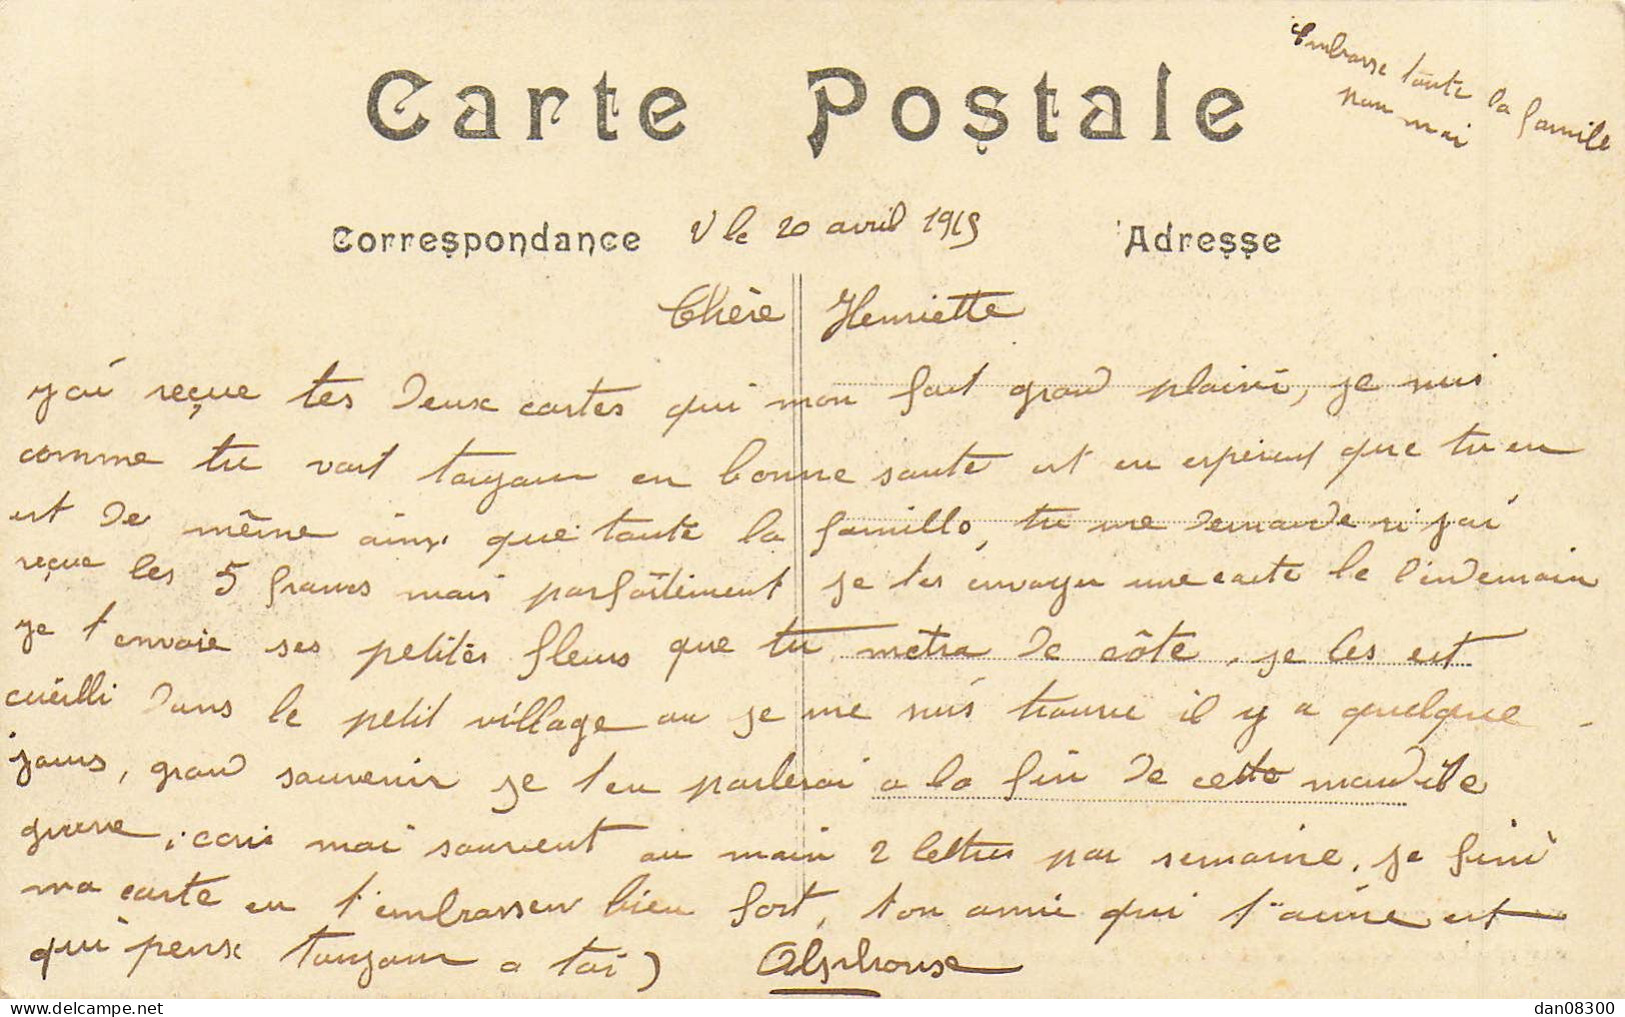 Embrasse toute la famile
pour moi
Carte Postale
Correspondance
V le 20 avril 1915
Adresse
Chère Henriette
j'ai reçue tes deux cartes qui mon fait grand plaisir, je suis
comme tu voit toujour en bonne sante est en espérent que tu en
est de même ainsi que toute la famille, tu me demande si j'ai
reçue les 5 francs mais parfaîtement je tes envoyer une carte le lindemain
je t'envoie ses petites fleurs que tu metra de côte, je les est
cueilli dans le petit village ou je me suis trouve il y a quelque
jours, grand souvenir je t'en parlerai a la fin de cette maudite
guerre, écris moi souvent au moin 2 lettres par semaine, je finis
ma carte en t'embrassen bien fort, ton amie qui t'aime est
qui pense toujour a toi)
Alphonse
dan08300